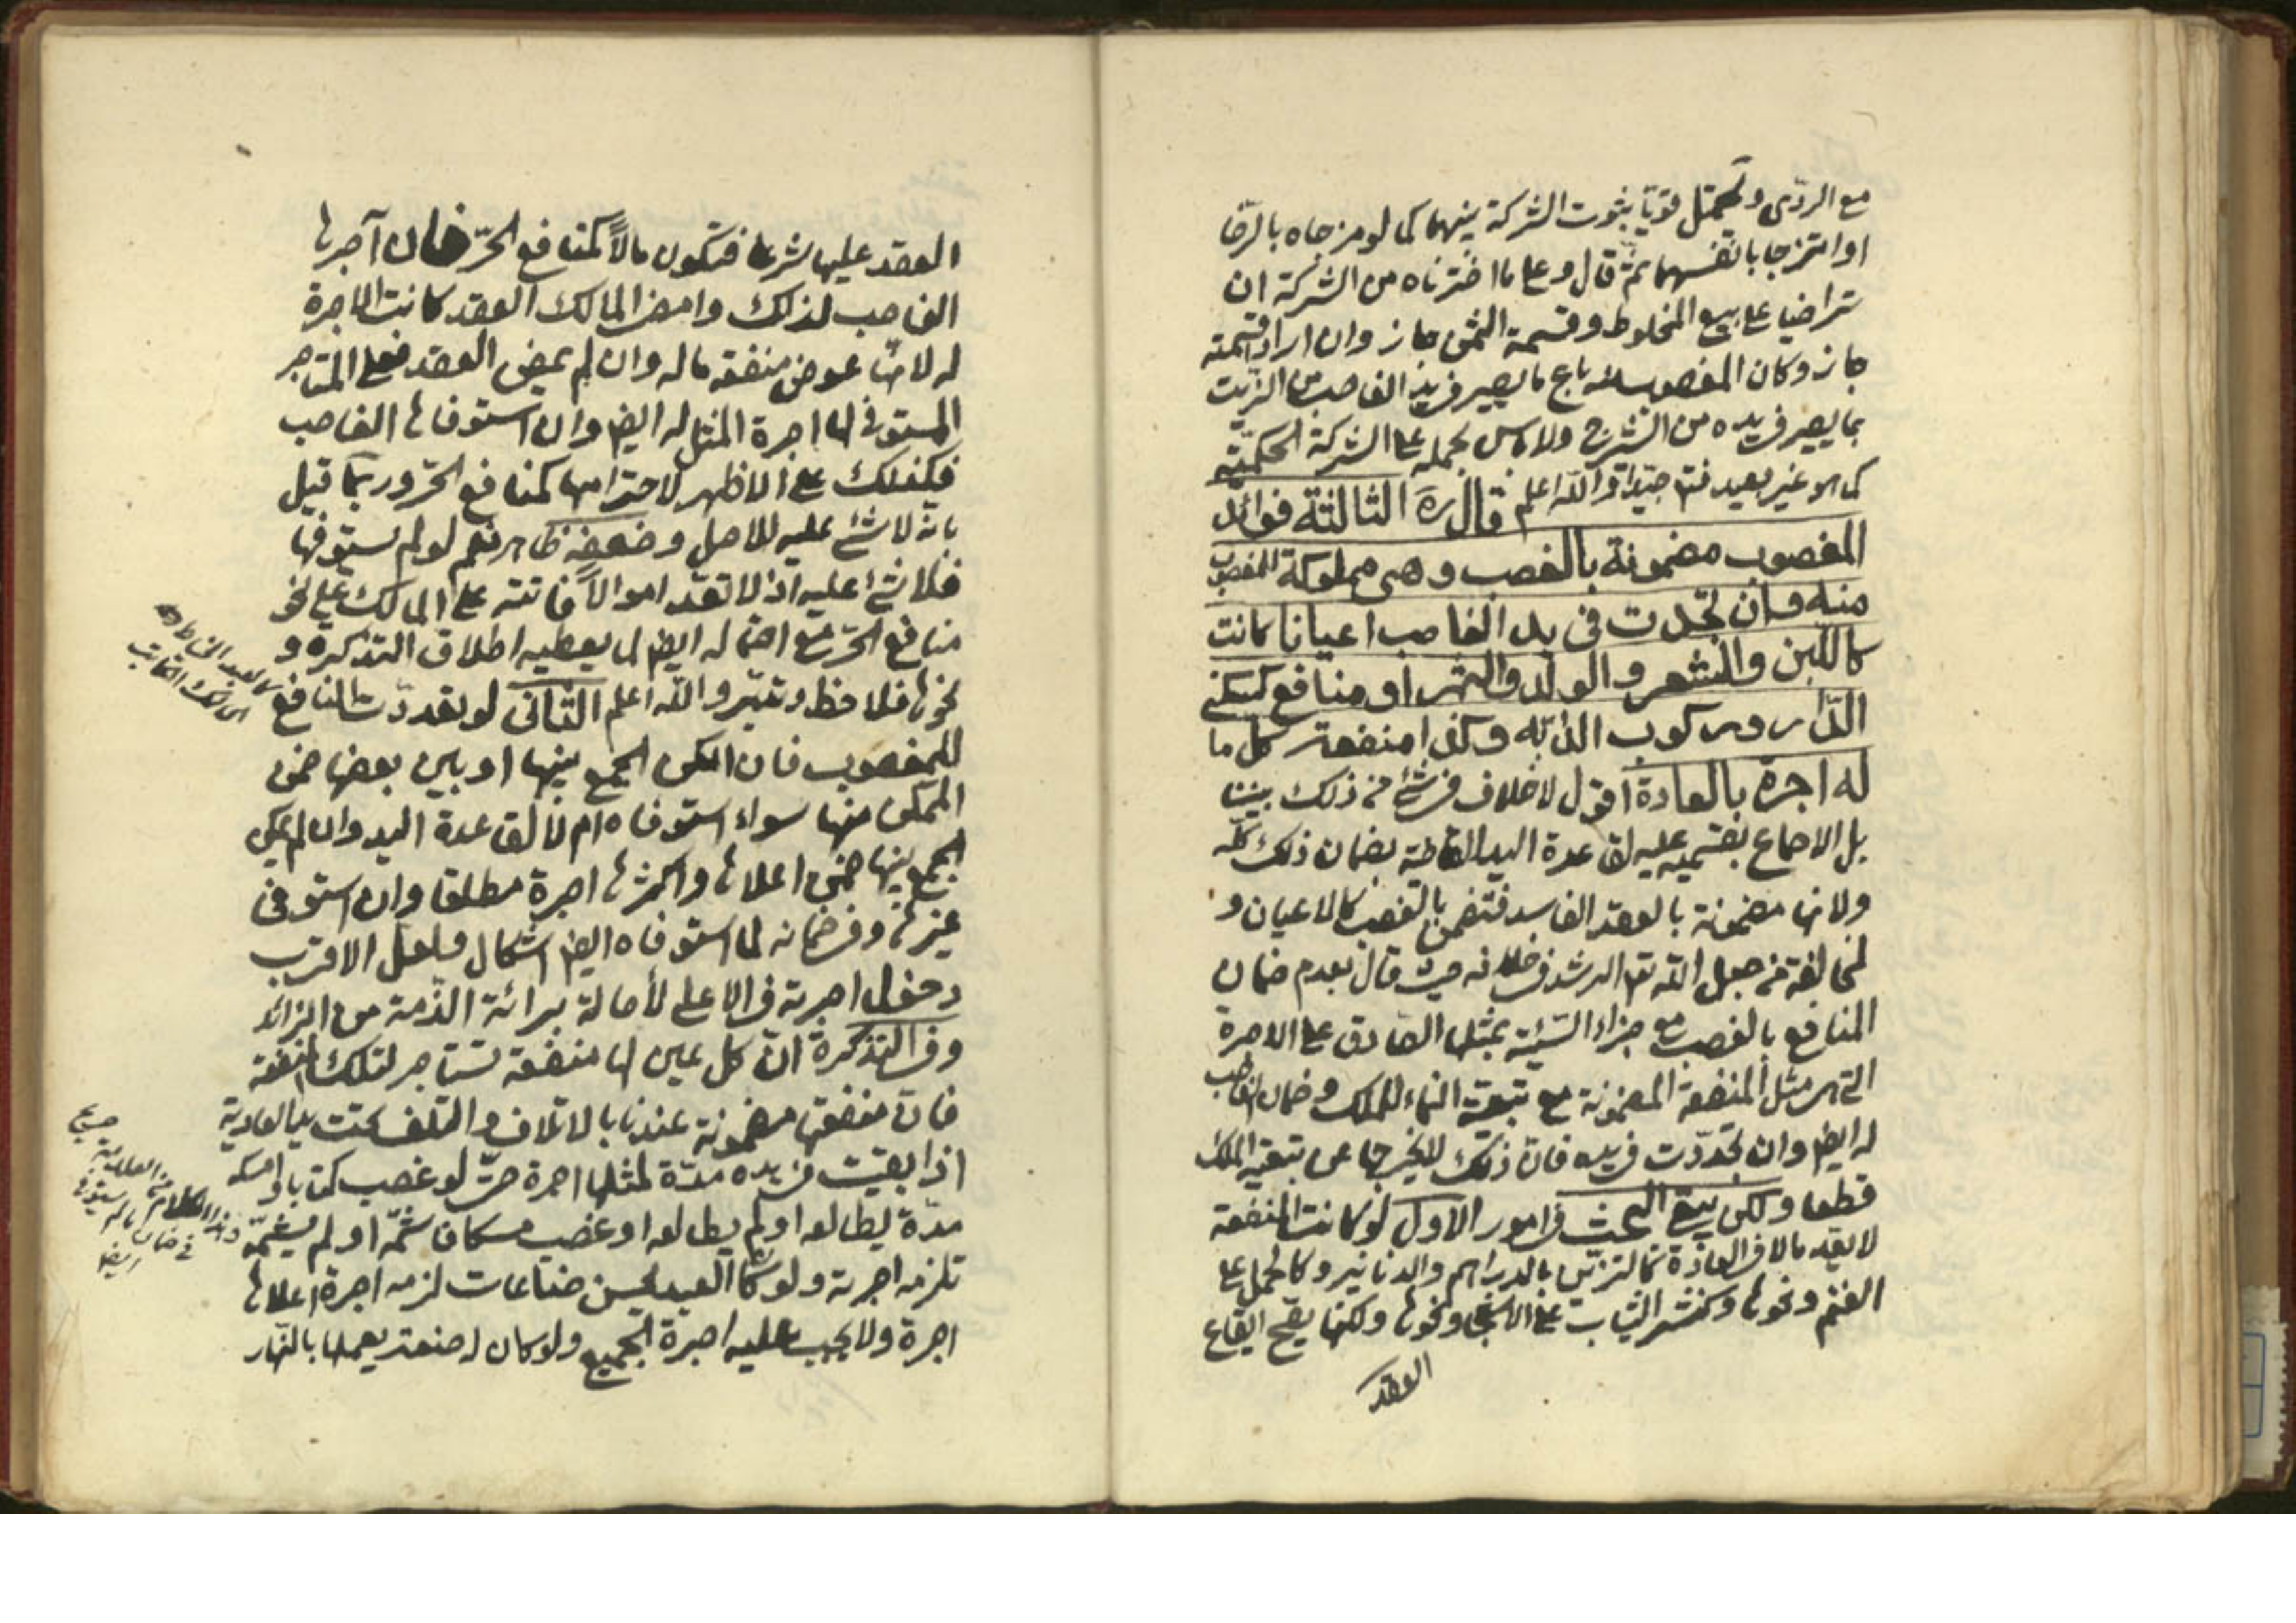 مع الردّى و تحتمل قويّا ثبوت الشركة بينهما كما لو مزجاه بالرّضا
او امتزجا بانفسهما ثمّ قال و على ما اخترناه من الشركة ان
تراضيا على بيع المخلوط و قسمة الثمن جاز و ان ارادا قسمته
جاز و كان المغصوب منه باع ما يصير فى يد الغاصب من الزّيت
بما يصير فى يده من الشيرج ولا باس بحمله على الشركة الحكميّة
كما هو غير بعيد فتامّ جيّدا و اللّه اعلم قال ره الثالثة فوائد
المغصوب مضمونة بالغصب و هى مملوكة للمغصوب
منه و ان تجدّدت فى يد الغاصب اعيانا كانت
كاللّبن و الشعر و الولد و الثمر او منافع كسكنى
الدّار و ركوب الدّابّة و كذا منفعة كل ما
له اجرة بالعادة اقول لا خلاف فى شئ من ذلك بيننا
بل الاجماع بقسميه عليه لقاعدة اليد القاضية بضمان ذلك كلّه
ولانها مضمونة بالعقد الفاسد فتضمن بالغصب كالاعيان و
لمخالفة من جعل اللّه تعالى الرشد فى خلافه حيث قال بعدم ضمان
المنافع بالغصب مع جزاء السّيّئة بمثلها الصّادق على الاجرة
التى هى مثل المنفعة المضمونة مع تبعيّة النماء للملك و ضمان الغاصب
له ايضا و ان تجدّدت فى يده فان ذلك لا يخرجها عن تبعيّة الملك
قطعا و لكن يبقى البحث فى امور الاوّل لو كانت المنفعة
لا تعدّ مالا فى العادة كالتزيّن بالدراهم والدنانير و كالحمل على
الغنم و نحوها و كنشر الثياب على الاشجار و نحوها و لكنها يصّح ايقاع
العقد
العقد عليها شرعا فتكون مالاً كمنافع الحرّ فان آجرها
الغاصب لذلك و امضى المالك العقد كانت الاجرة
له لانها عوض منفعة ماله و ان لم يمض العقد فعلى المستاجر
المستوفى لها اجرة المثل له ايضا و ان استوفاها الغاصب
فكذلك على الاظهر لاحترامها كمنافع الحرّ و ربما قيل
بانّه لا شئ عليه للاصل و ضعفه ظاهر نعم لو لم يستوفها
فلا شئ عليه اذ لا تعدّ اموالاً فائتة على المالك على نحو
منافع الحرّ مع احتماله ايضا لما يعطيه اطلاق التذكرة و
نحوها فلاحظ و تدبّر و اللّه اعلم الثّانى لو تعدّدت المنافع
للمغصوب فان امكن الجمع بينها او بين بعضها ضمن
الممكن منها سواء استوفاه ام لا لقاعدة اليد و ان لم يمكن
الجمع بينها ضمن اعلاها و اكثرها اجرة مطلقا و ان استوفى
غيرها و فى ضمانه لما استوفاه ايضا اشكال و لعل الاقرب
دخول اجرته فى الاعلى لأصالة برائة الذّمة من الزائد
و فى التذكرة انّ كل عين لها منفعة تستاجر لتلك المنفعة
فان منفعتها مضمونة عندنا بالاتلاف و التلف تحت يد العادية
اذا بقيت فى يده مدّة لمثلها اجرة حتّى لو غصب كتابا و امسكه
مدّة يطالعه او لم يطالعه او غصب مسكا فشمّه او لم يشمّه
تلزمه اجرته و لو كان العبد يحسن صناعات لزمه اجرة اعلاها
اجرة ولا يجب عليه اجرة الجميع ولو كان له صنعة يعملها بالنّهار